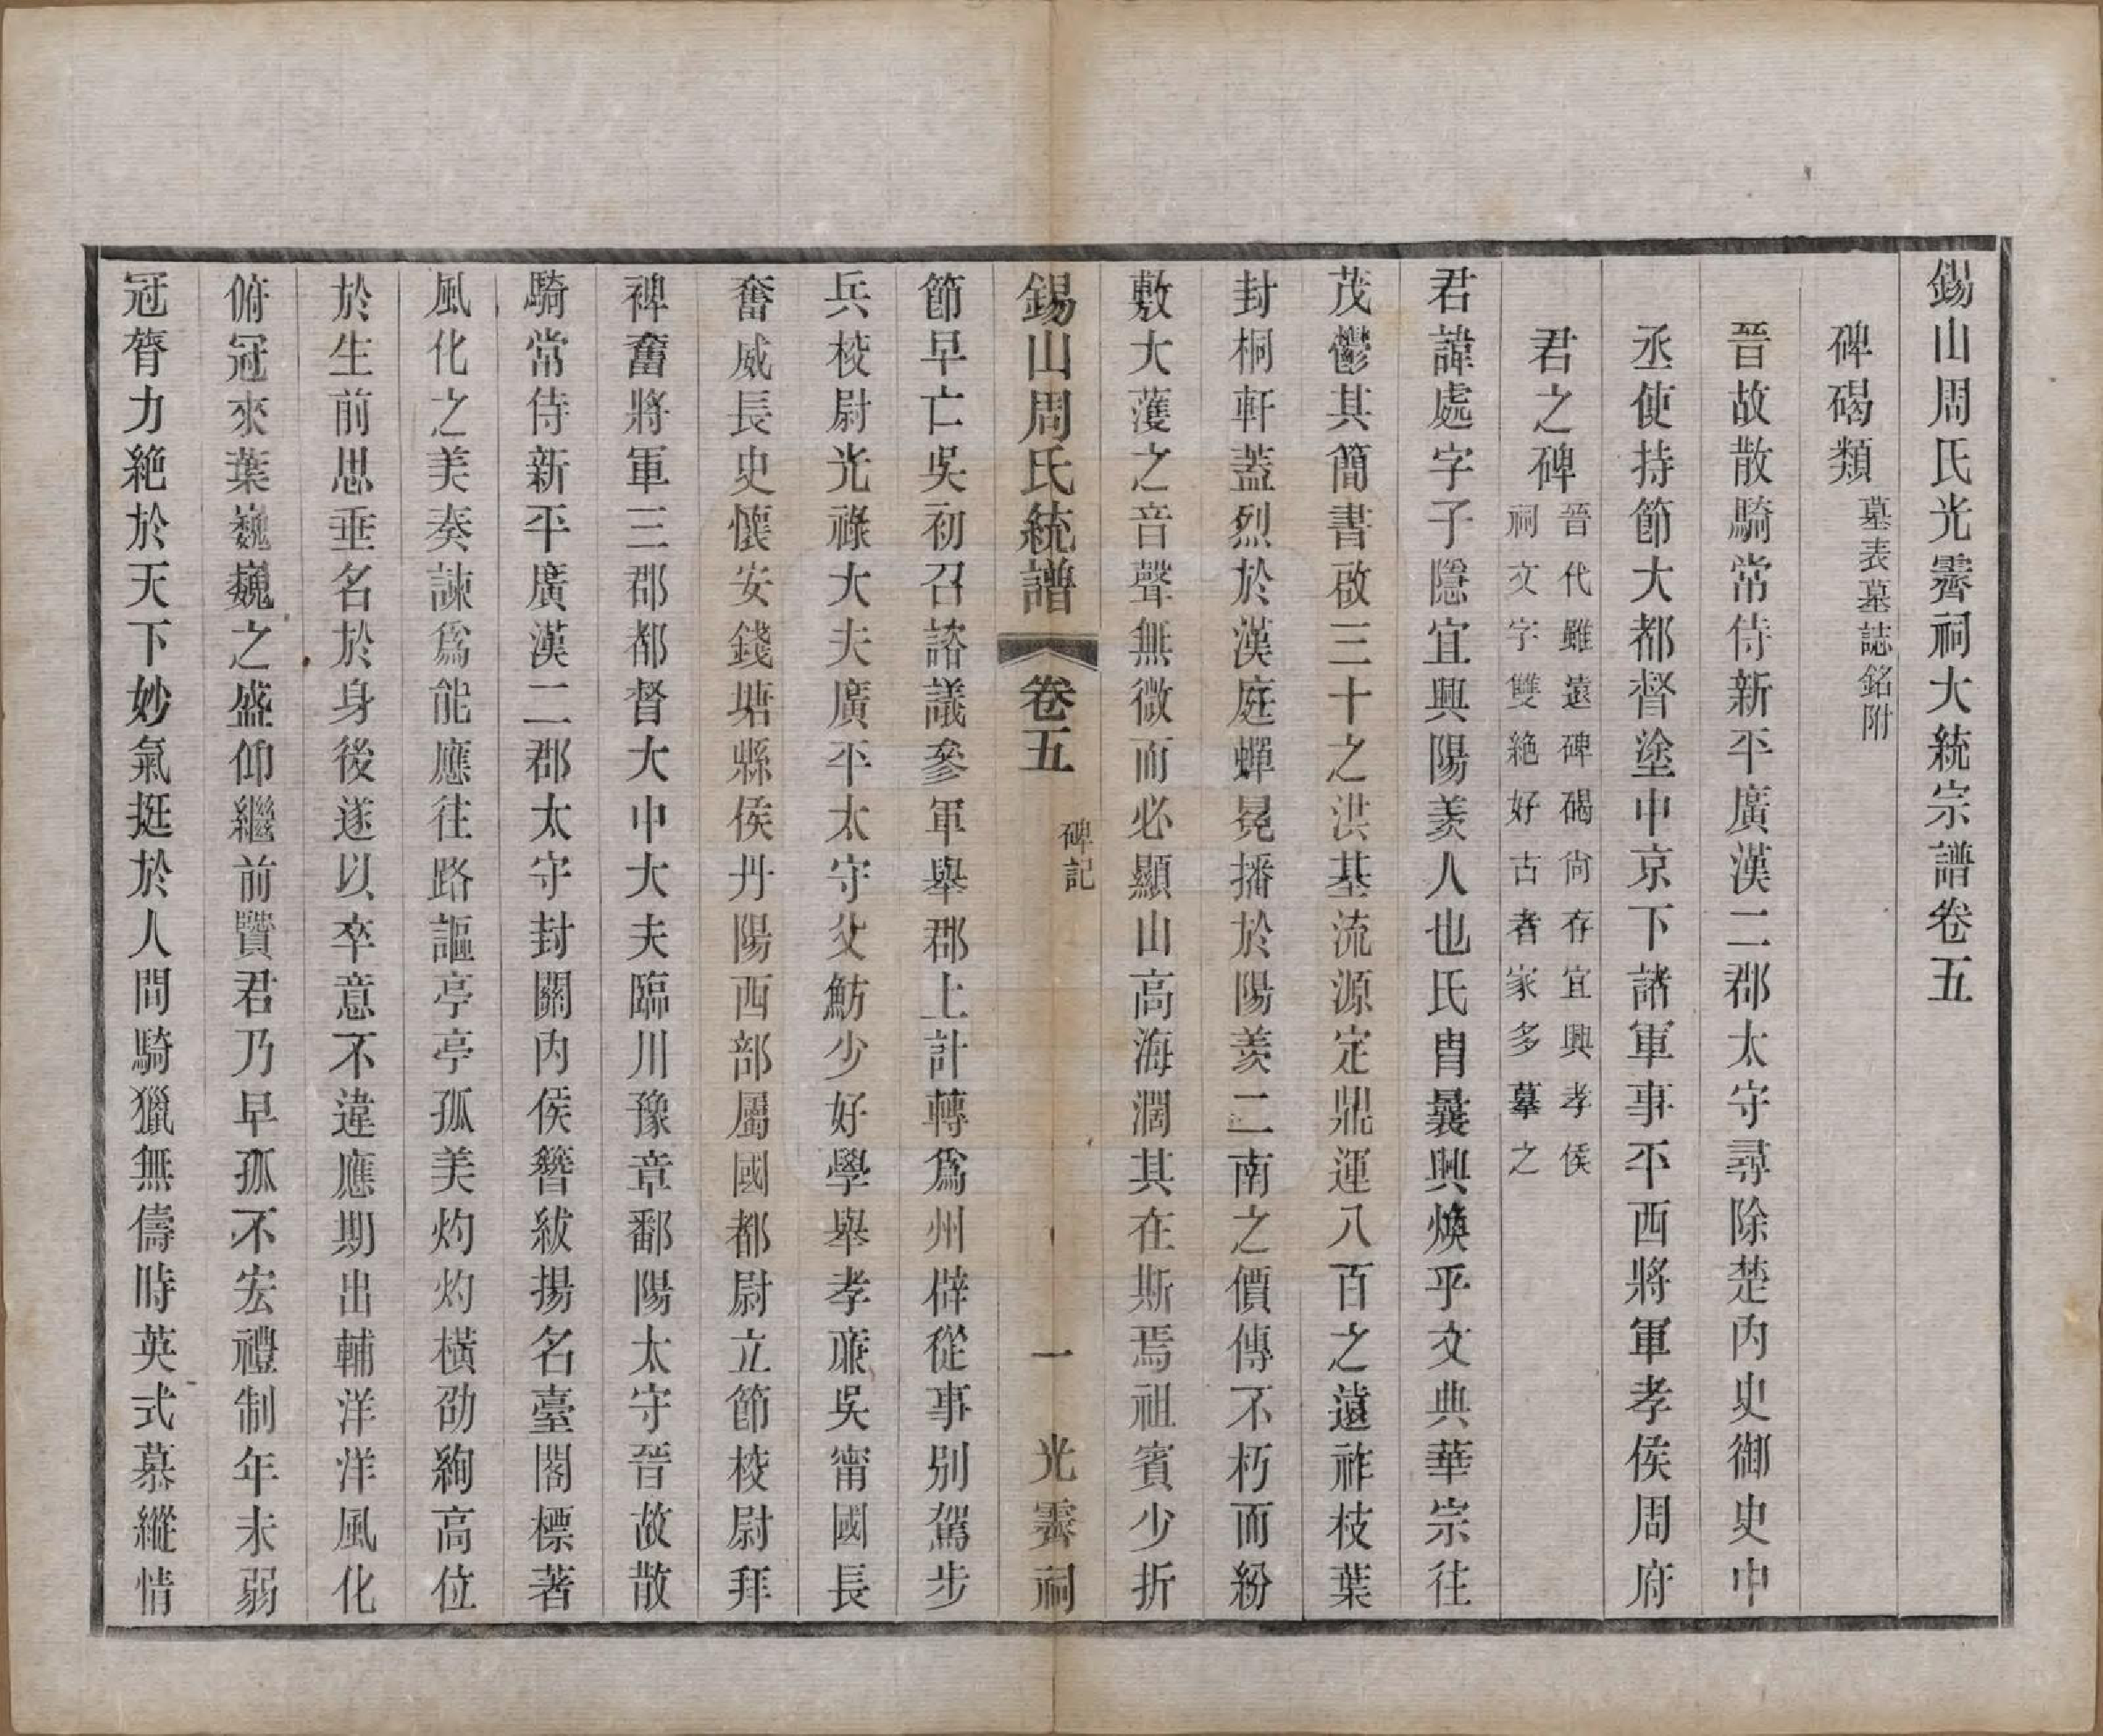 錫山周氏光霽祠大統宗譜卷五
碑碣類
墓表墓誌銘附
晉故散騎常侍新平廣漢二郡太守尋除楚內史御史中
丞使持節大都督塗中京下諸軍事平西將軍孝侯周府
君之碑
晉代雖遠碑碣尚存宜興孝侯
祠文字雙絶好古者家多摹之
君諱處字子隱宜興陽羨人也氏胄曩興煥乎文典華宗往
茂鬱其簡書啟三十之洪基流源定鼎運八百之遠祚枝葉
封桐軒蓋烈於漢庭蟬冕播於陽羨二南之價傳不朽而紛
敷大蒦之音聲無微而必顯山高海濶其在斯焉祖賓少折
錫山周氏統譜
卷五
碑記
一
光霽祠
節早亡吳初召諮議參軍舉郡上計轉爲州辟從事別駕步
兵校尉光祿大夫廣平太守父魴少好學舉孝廉吳甯國長
奮威長史懷安錢塘縣侯丹陽西部屬國都尉立節校尉拜
裨奮將軍三郡都督大中大夫臨川豫章鄱陽太守晉故散
騎常侍新平廣漢二郡太守封關內侯簪紱揚名臺閣標著
風化之美奏諫爲能應往路謳亭亭孤美灼灼橫劭絢高位
於生前思垂名於身後遂以卒意不違應期出輔洋洋風化
俯冠來葉巍巍之盛仰繼前賢君乃早孤不宏禮制年未弱
冠膂力絶於天下妙氣挺於人間騎獵無儔時英式慕縱情